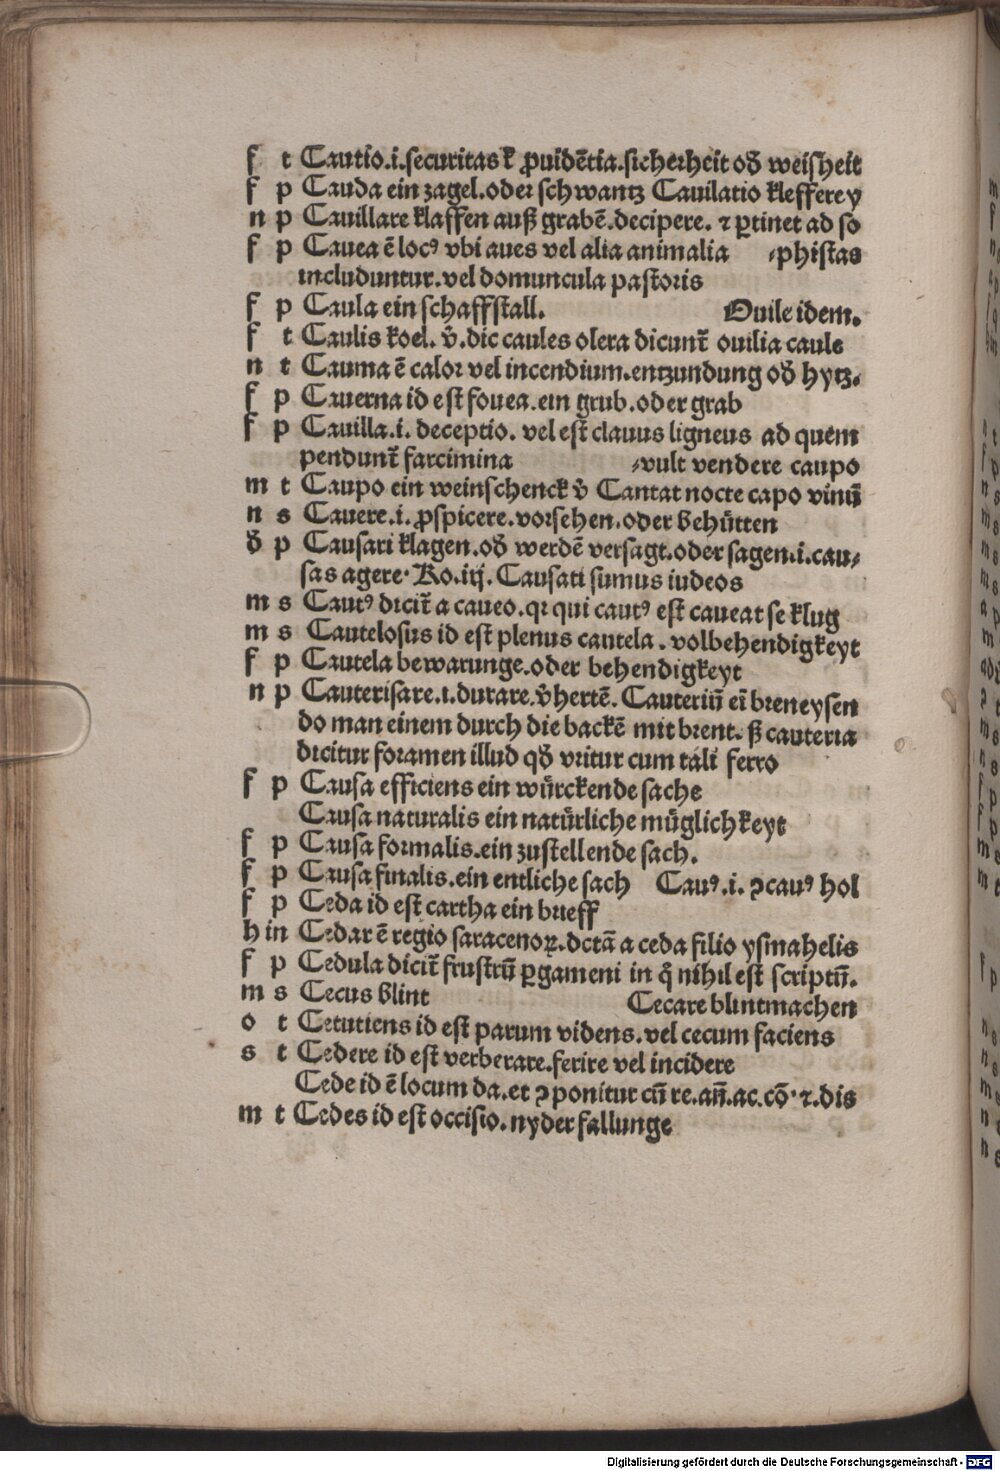 f t Cautio.i.securitas ꝉ ꝓuidētia.sicherheit oď weisheit
f p Cauda ein zagel.oder schwantz Cauilatio klefferey
n p Cauillare klaffen auß grabē.decipere. ⁊ ꝑtinet ad so
f p Cauea ē locꝰ vbi aues vel alia animalia ⸗phistas
includuntur.vel domuncula pastoris
f p Caula ein schaffstall. Ouile idem.
f t Caulis koel. v̉.dic caules olera dicunt̄ ouilia caule
n t Cauma ē calor vel incendium.entzundung oď hytz⸗
f p Cauerna id est fouea.ein grub.oder grab
f p Cauilla.i. deceptio. vel est clauus ligneus ad quem
pendunt̄ farcimina ⸗vult vendere caupo
m t Caupo ein weinschenck v̉ Cantat nocte capo vinū
n s Cauere.i.ꝓspicere.vorsehen.oder behütten
ď p Causari klagen.oď werdē versagt.oder sagen.i.cau⸗
sas agere. Ro.iij. Causati sumus iudeos
m s Cautꝰ dicit̄ a caueo.qꝛ qui cautꝰ est caueat se klug
m s Cautelosus id est plenus cautela. volbehendigkeyt
f p Cautela bewarunge.oder behendigkeyt
n p Cauterisare.i.durare.v̉hertē. Cauteriū eī breneysen
do man einem durch die backē mit brent. ß cauteria
dicitur foramen illud qď vritur cum tali ferro
f p Causa efficiens ein würckende sache
Causa naturalis ein natürliche müglichkeyt
f p Causa formalis.ein zustellende sach.
f p Causa finalis.ein entliche sach Cauꝰ.i. ꝯcauꝰ hol
f p Ceda id est cartha ein brieff
h in Cedar ē regio saracenoꝝ.dctā a ceda filio ysmahelis
f p Cedula dicit̄ frustrū ꝑgameni in q̊ nihil est scriptū.
m s Cecus blint Cecare blintmachen
o t Cecutiens id est parum videns.vel cecum faciens
s t Cedere id est verberare.ferire vel incidere
Cede id ē locum da.et ꝯponitur cū re.an̄.ac.cō.⁊.dis
m t Cedes id est occisio.nyderfallunge
Digitalisierung gefördert durch die Deutsche Forschungsgemeinschaft - DFG